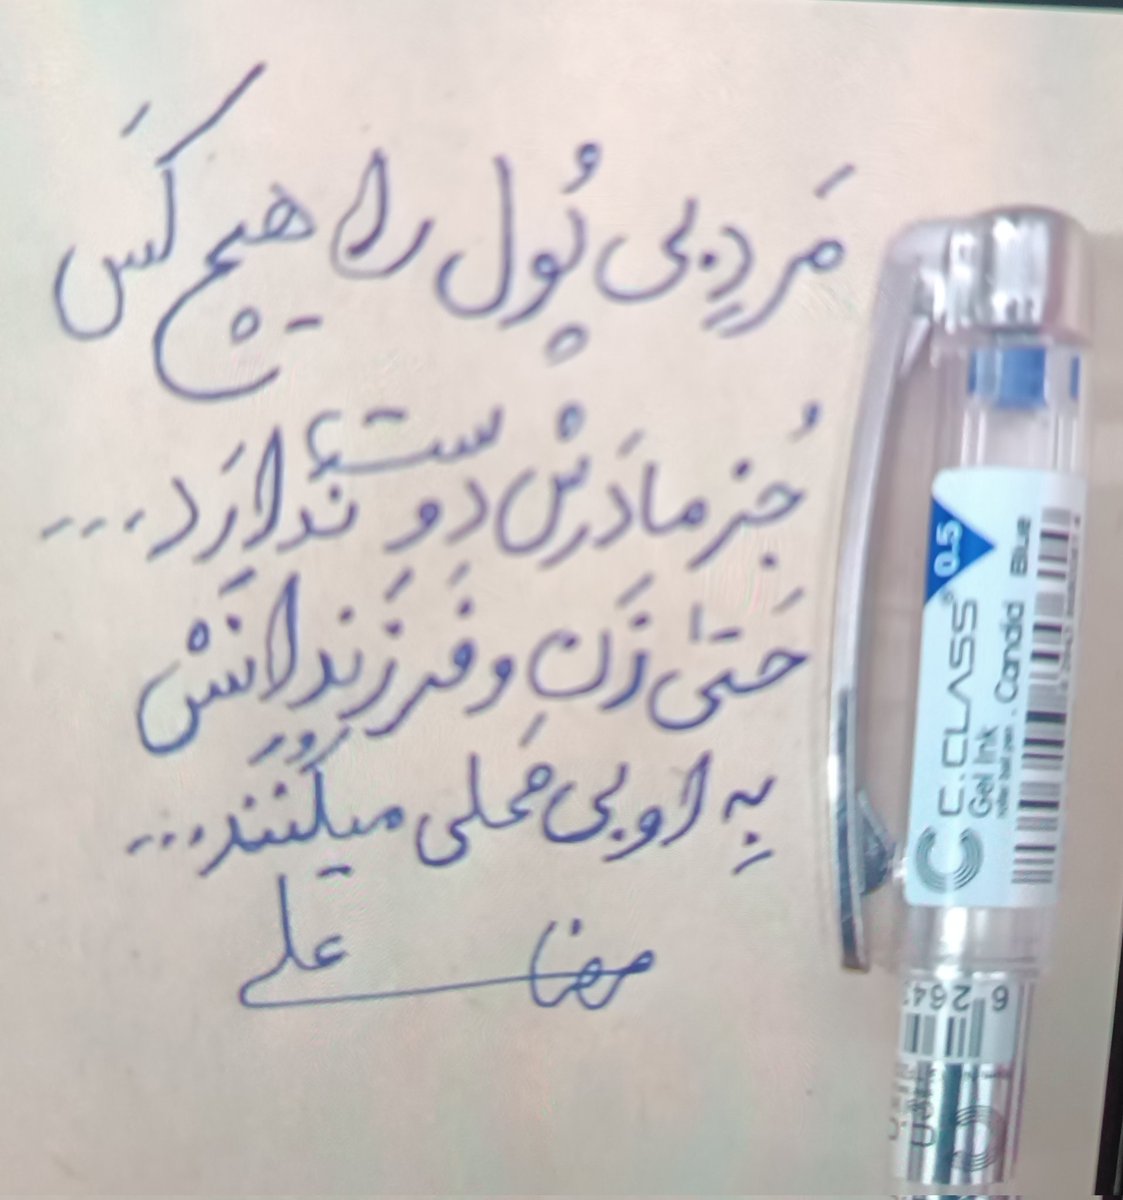 مَردِ بی پُول را هیچ کَس
جُز مادَرِشْ دوستْ نَدارَد...
حَتیٰ زَنِ و فَرزَندانَشْ
بِه او بی مَحلی میکُنَند...
علی
C.CLASS®
Gel Ink
roller ball pen . Candid Blue
0.5